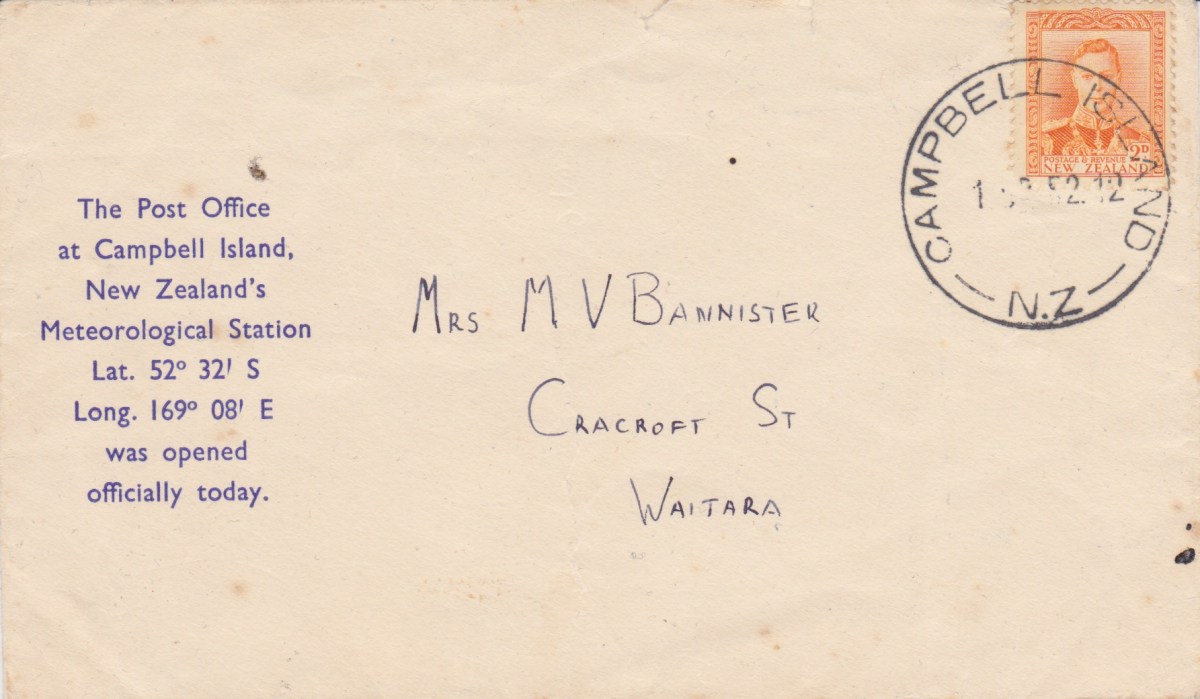 The Post Office
at Campbell Island,
New Zealand's
Meteorological Station
Lat. 52º 32' S
Long. 169º 08' E
was opened
officially today.
MRS M V BANNISTER
CRACROFT ST
WAITARA
CAMPBELL ISLAND
N.Z
52.12
2D
POSTAGE & REVENUE
NEW ZEALAND